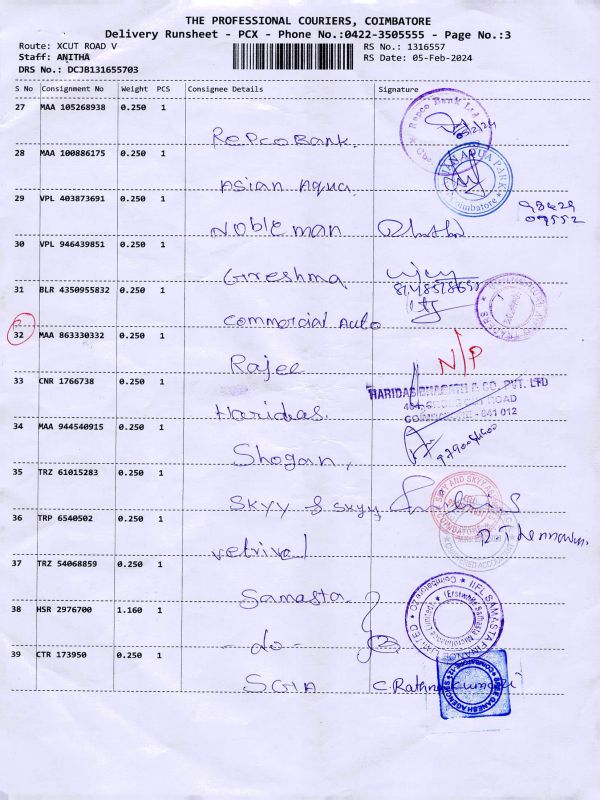 THE PROFESSIONAL COURIERS, COIMBATORE
Delivery Runsheet - PCX - Phone No.:0422-3505555 - Page No.:3
Route: XCUT ROAD V
RS No.: 1316557
Staff: ANITHA
RS Date: 05-Feb-2024
DRS No.: DCJB131655703
S No Consignment No Weight PCS Consignee Details Signature
27 MAA 105268938 0.250 1
Repco Bank Ltd
05/2/24
Repco Bank.
28 MAA 100886175 0.250 1
ASIAN AQUA PARK
Coimbatore
Asian Aqua
29 VPL 403873691 0.250 1
98429
09552
Nobleman
30 VPL 946439851 0.250 1
Greshma
31 BLR 4350955832 0.250 1
Commercial Auto
32 MAA 863330332 0.250 1
N/P
Rajee
33 CNR 1766738 0.250 1
HARIDAS BHAGATH & CO. PVT. LTD
ROAD
COIMBATORE - 641 012
Haridas.
34 MAA 944540915 0.250 1
Shogan,
35 TRZ 61015283 0.250 1
Skyy & Skyy
36 TRP 6540502 0.250 1
CHARTERED ACCOUNTANTS
Vetrivel
37 TRZ 54068859 0.250 1
Samasta
38 HSR 2976700 1.160 1
IIFL SAMASTA FINANCE LIMITED
(Erstwhile Samasta Microfinance Limited)
Coimbatore
-do-
39 CTR 173950 0.250 1
SREE GANESH AGENCIES
COIMBATORE-12
SGIA
C. Rathna Kumari